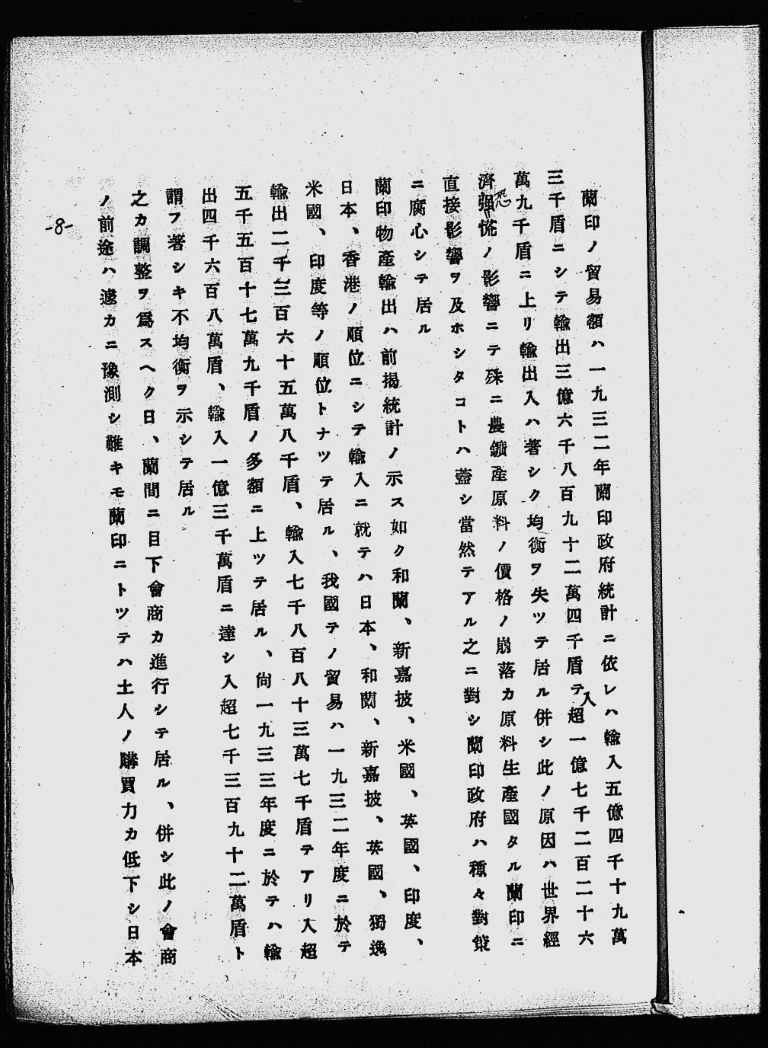 蘭印ノ貿易額ハ一九三二年蘭印政府統計ニ依レハ輸入五億四千十九萬
三千盾ニシテ輸出三億六千八百九十二萬四千盾テ入超一億七千二百二十六
萬九千盾ニ上リ輸出入ハ著シク均衡ヲ失ツテ居ル併シ此ノ原因ハ世界經
濟恐慌ノ影響ニテ殊ニ農鑛產原料ノ價格ノ崩落カ原料生產國タル蘭印ニ
直接影響ヲ及ホシタコトハ蓋シ當然テアル之ニ對シ蘭印政府ハ種々對策
ニ腐心シテ居ル
蘭印物產輸出ハ前揭統計ノ示ス如ク和蘭、新嘉披、米國、英國、印度、
日本、香港ノ順位ニシテ輸入ニ就テハ日本、和蘭、新嘉披、英國、獨逸
米國、印度等ノ順位トナツテ居ル、我國テノ貿易ハ一九三二年度ニ於テ
輸出二千三百六十五萬八千盾、輸入七千八百八十三萬七千盾テアリ入超
五千五百十七萬九千盾ノ多額ニ上ツテ居ル、尙一九三三年度ニ於テハ輸
出四千六百八萬盾、輸入一億三千萬盾ニ達シ入超七千三百九十二萬盾ト
謂フ著シキ不均衡ヲ示シテ居ル
之カ調整ヲ爲スヘク日、蘭間ニ目下會商カ進行シテ居ル、併シ此ノ會商
ノ前途ハ遽カニ豫測シ難キモ蘭印ニトツテハ土人ノ購買力カ低下シ日本
-8-